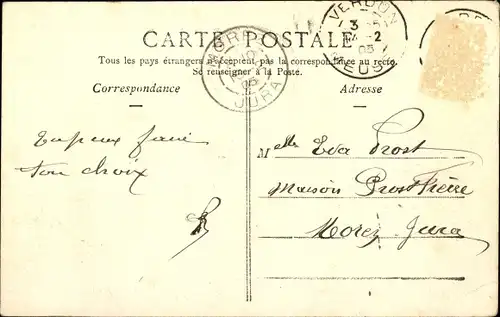 CARTE POSTALE
Tous les pays étrangers n'acceptent pas la correspondance au recto.
Se renseigner à la Poste.
Correspondance
Adresse
VERDUN
3
2
05
MEUSE
MOREZ
05
JURA
Tu peux faire
ton choix
Melle Eva Prost
Maison Prost Frère
Morez Jura